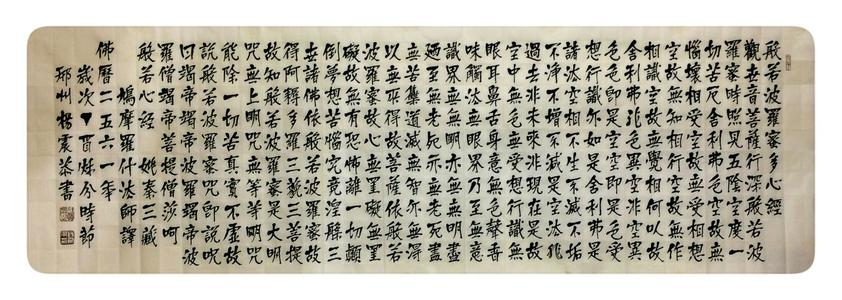 般若波羅蜜多心經
觀世音菩薩行深般若波
羅蜜時照見五陰空度一
切苦厄舍利弗色空故無
惱壞相受空故無受相想
空故無知相行空故無作
相識空故無覺相何以故
舍利弗非色異空非空異
色色即是空空即是色受
想行識亦如是舍利弗是
諸法空相不生不滅不垢
不淨不增不減是空法非
過去非未來非現在是故
空中無色無受想行識無
眼耳鼻舌身意無色聲香
味觸法無眼界乃至無意
識界無無明亦無無明盡
廼至無老死亦無老死盡
無苦集道滅無智亦無得
以無所得故菩薩依般若
波羅蜜故心無罣礙無罣
礙故無有恐怖離一切顛
倒夢想苦惱究竟涅槃三
世諸佛依般若波羅蜜故
得阿耨多羅三藐三菩提
故知般若波羅蜜是大明
咒無上明咒無等等明咒
能除一切苦真實不虛故
說般若波羅蜜咒即說咒
曰竭帝竭帝波羅竭帝波
羅僧竭帝菩提僧莎呵
般若心經 姚秦三藏
鳩摩羅什法師譯
佛曆二五六一年
歲次丁酉秋分時節
邢州楊震恭書